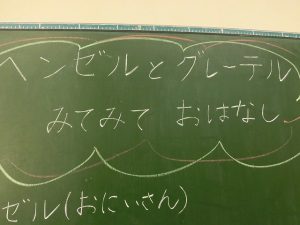 ヘンゼルとグレーテル
みてみて おはなし
ゼル(おにいさん)